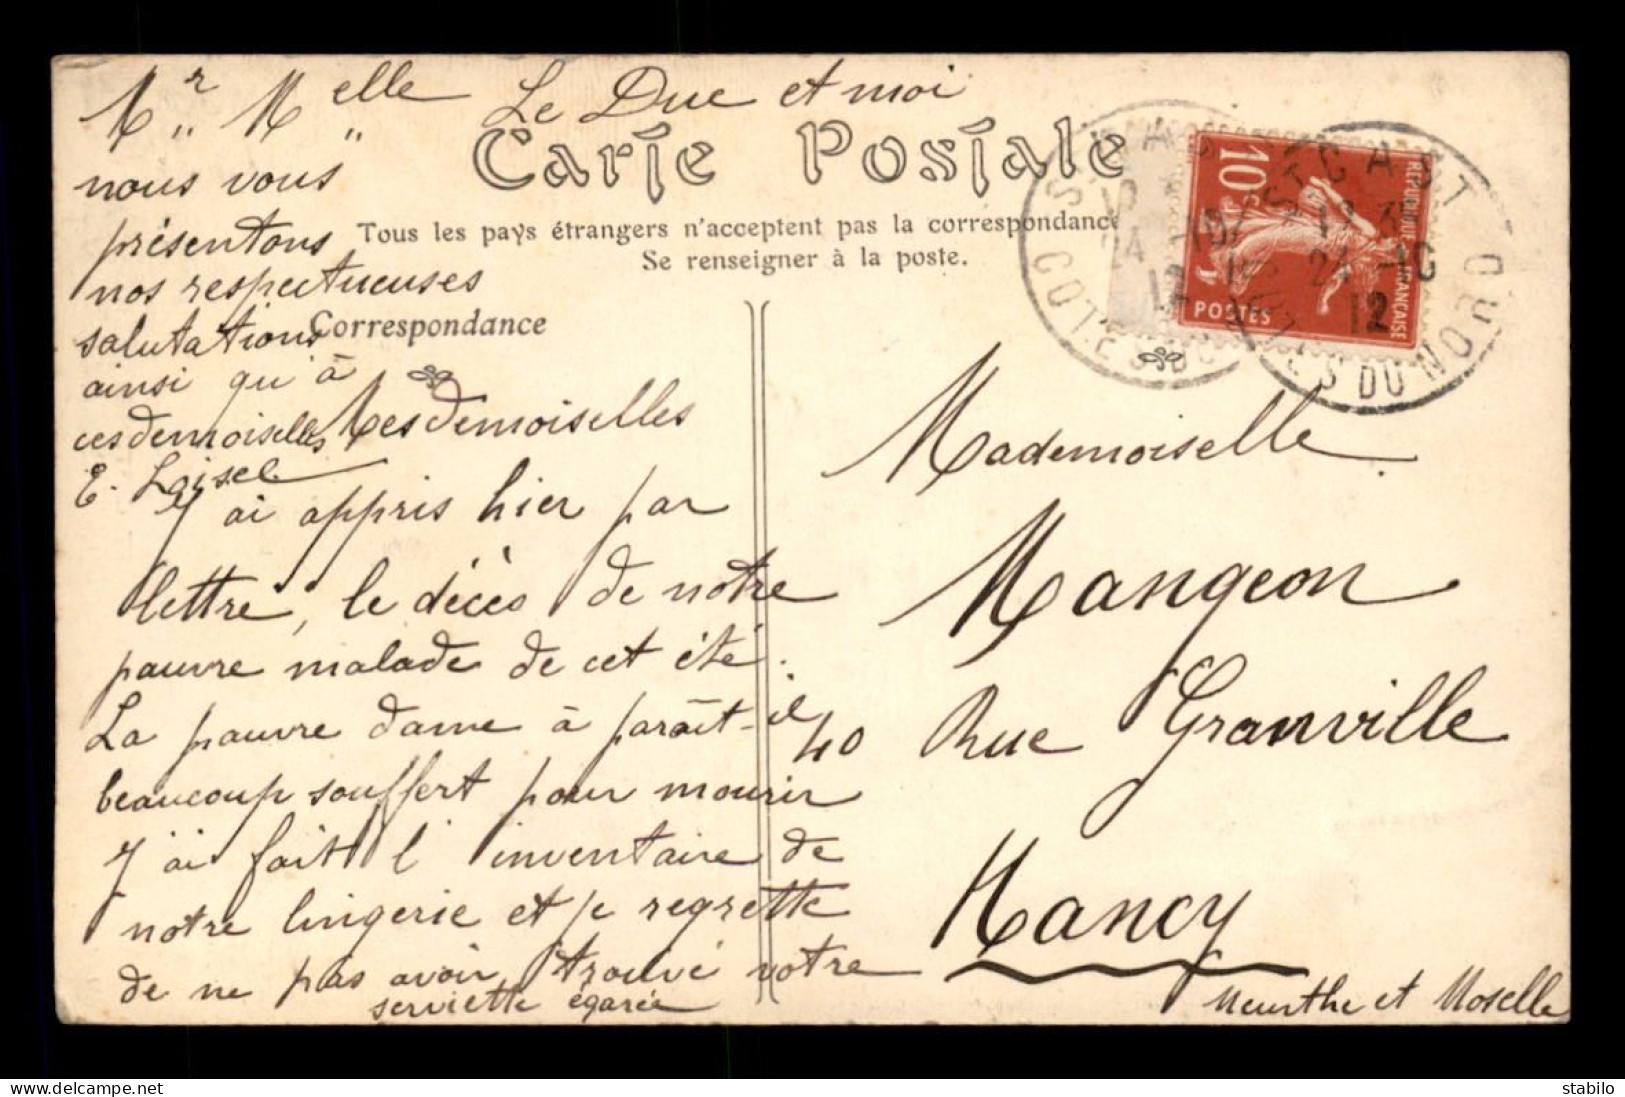 Mr Melle Le Duc et moi
nous vous
présentons
nos respectueuses
salutations
ainsi qu'à
ces demoiselles
E. Loisel
Carte Postale
Tous les pays étrangers n'acceptent pas la correspondance
Se renseigner à la poste.
Correspondance
Mesdemoiselles
J'ai appris hier par
lettre, le décès de notre
pauvre malade de cet été.
La pauvre dame à parâit-il
beaucoup souffert pour mourir
J'ai fait l'inventaire de
notre lingerie et je regrette
de ne pas avoir trouvé votre
serviette égarée
Mademoiselle
Mangeon
40 Rue Granville
Nancy
Meurthe et Moselle
10c
REPUBLIQUE FRANÇAISE
POSTES
ST CAST
24 -10
12
COTES DU NORD
ST CAST
24 -10
12
COTES DU NORD
stabilo